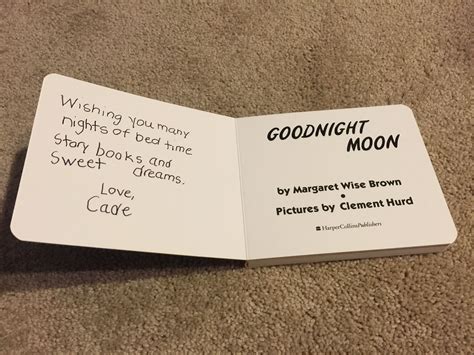 Wishing you many
nights of bed time
story books and
sweet dreams.
Love,
Cade
GOODNIGHT
MOON
by Margaret Wise Brown
Pictures by Clement Hurd
HarperCollinsPublishers